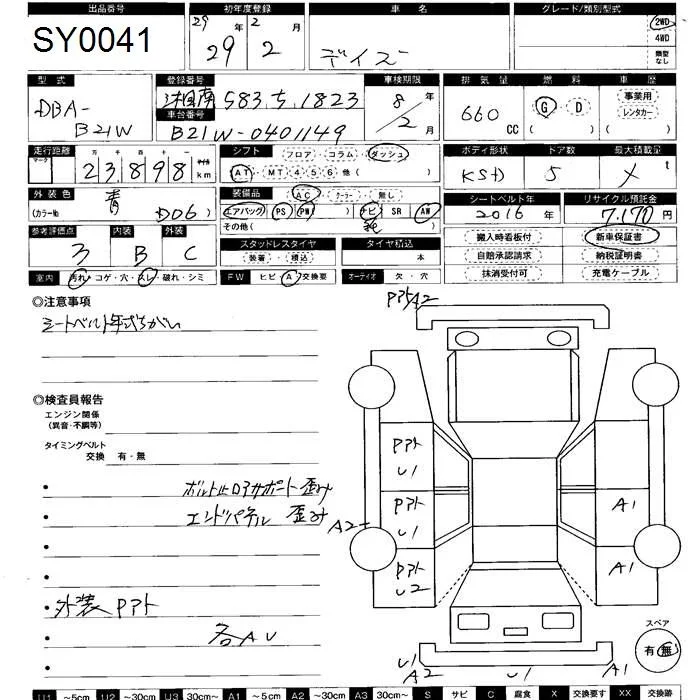 出品番号 初年度登録 車名 グレード/類別型式
SY0041 29 年 2 月 29 2 デイズ 2WD 4WD 類型なし
型式 登録番号 車検期限 排気量 燃料 車歴
DBA-B21W 湘南 583 ち 1823 8 年 2 月 660 CC G・D ( ) 事業用 レンタカー ( )
車台番号
B21W-0401149
走行距離 シフト フロア・コラム・ダッシュ ボディ形状 ドア数 最大積載量
マーク 十 万 千 百 十 一 マイル
23898 km AT・MT 4 5 6 ( ) 5 t
外装色 装備品 AC・クーラー・無し シートベルト年 リサイクル預託金
青 (カラーNo D06) エアバッグ PS PW ナビ SR AW 2016 年 7.170 円
その他 ( )
参考評価点 内装 外装 スタッドレスタイヤ タイヤ積込 搬入時看板付 新車保証書
3 B C 装着・積込 本 自賠承認請求 納税証明書
室内 汚れ・コゲ・穴・スレ・破れ・シミ FW ヒビ・A 交換要 オーディオ 欠・穴 抹消受付可 充電ケーブル
○注意事項
シートベルト年式ちがい
○検査員報告
エンジン関係
(異音・不調等)
タイミングベルト
交換 有・無
・ボルト止ロアサポート 歪み
・エンドパネル 歪み
・外装 Pアト
・各AU
Pアト A2
Pアト U1
Pアト U1 A1
A2
Pアト U2 A1
スペア
有・無
U1 A2 U1 A2
U1 ~5cm U2 ~30cm U3 30cm~ A1 ~5cm A2 ~30cm A3 30cm~ S サビ C 腐食 X 交換要す XX 交換跡